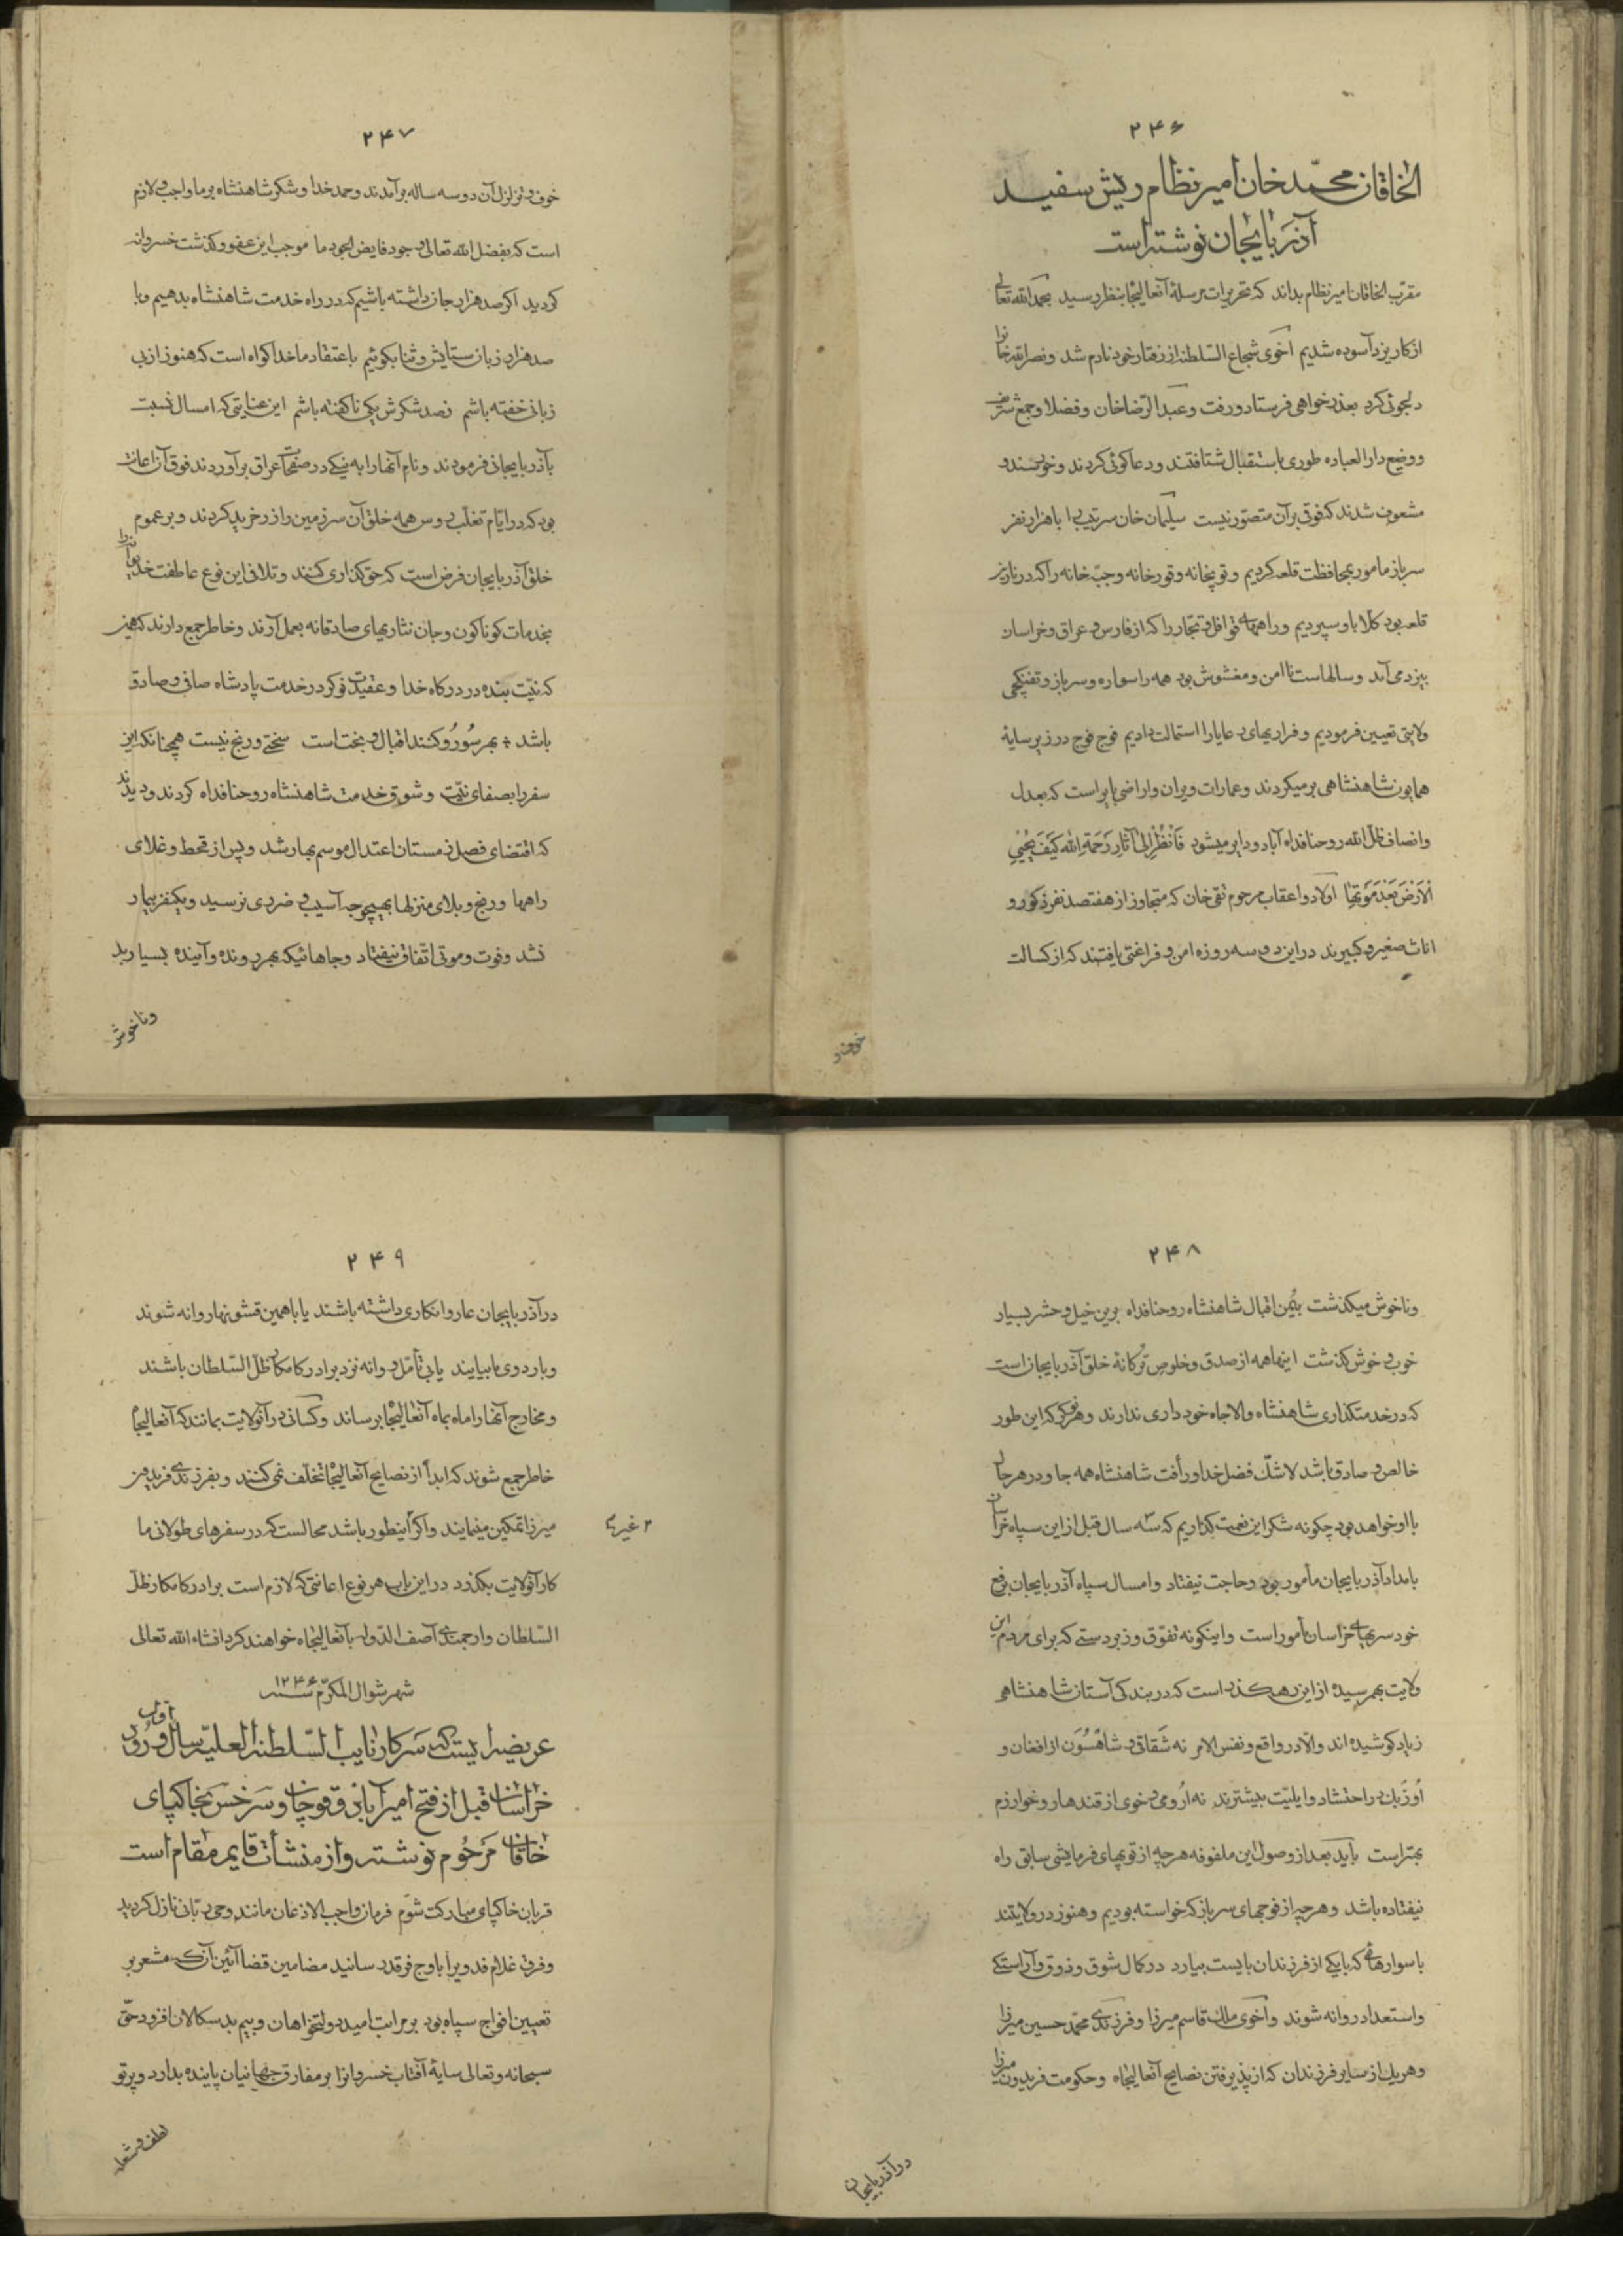 ۲۴۶
الخاقان محمّد خان امیر نظام ریش سفید
آذربایجان نوشته است
مقرّب الخاقان امیر نظام بداند که تحریرات مرسلهٔ آنعالیجا بنظر رسید بحمد الله تعالی
از کار یزد آسوده شدیم اخوی شجاع السّلطنه از رفتار خود نادم شد و نصرالله خانرا
دلجوئی کرد بعذرخواهی فرستاد و رفت و عبدالرّضا خان و فضلا و جمع شریف
و وضیع دار العباده طوری باستقبال شتافتند و دعا کوئی کردند و خورسند و
مشعوف شدند که فوقی بر آن متصوّر نیست سلیمان خان سرتیپ را با هزار نفر
سرباز مامور بمحافظت قلعه کردیم و توپخانه و قورخانه و جبّه خانه را که در نارین
قلعه بود کلّا باو سپردیم و راههای قوافل و تجّار را که از فارس و عراق و خراسان
بیزد می آمد و سالهاست ناامن و مغشوش بود همه را سواره و سرباز و تفنکچی
ولایتی تعیین فرمودیم و فراریهای رعایا را استمالت دادیم فوج فوج در زیر سایهٔ
همایون شاهنشاهی برمیکردند و عمارات ویران و اراضی بایر است که بعدل
و انصاف ظلّ الله روحنا فداه آباد و دایر میشود فَانْظُرْ اِلیٰ آثارِ رَحمَةِ الله کَیْفَ یُحْییِ
الْاَرْضَ بَعْدَ مَوْتِها اولاد و اعقاب مرحوم تقی خان که متجاوز از هفتصد نفر ذکور و
اناث صغیر و کبیرند در این دو سه روزه امن و فراغتی یافتند که از کسالت
خوف و
۲۴۷
خوف و تزلزل آن دو سه ساله برآمدند و حمد خدا و شکر شاهنشاه بر ما واجب و لازم
است که بفضل الله تعالی وجود فایض الجود ما موجب این عفو و کذشت خسروانه
کردید اکر صد هزار جان داشته باشیم که در راه خدمت شاهنشاه بدهیم و با
صد هزار زبان ستایش و ثنا بکوئیم باعتقاد ما خدا کواه است که هنوز از بی
زبانی خفته باشم ز صد شکرش یکی ناکفته باشم این عنایتی که امسال نسبت
بآذربایجانی فرمودند و نام آنها را به نیکی در صفحات عراق برآوردند فوق آن اعانت
بود که در ایّام تغلّب روس همه خلق آن سرزمین را زر خرید کردند و بر عموم
خلق آذربایجان فرض است که حق کذاری کنند و تلافی این نوع عاطفت خدیوانه را
بخدمات کوناکون و جان نثاریهای صادقانه بعمل آرند و خاطر جمع دارند که همین
که نیّت بنده در درکاه خدا و عقیدت نوکر در خدمت پادشاه صافی و صادق
باشد بهر سُو رُو کنند اقبال و بخت است سختی و رنج نیست همچنانکه این
سفر را بصفای نیّت و شوق خدمت شاهنشاه روحنا فداه کردند و دیدند
که اقتضای فصل زمستان اعتدال موسم بهار شد و پس از قحط و غلای
راهها و رنج و بلای منزلها بهیچوجه آسیب و ضرری نرسید و یکنفر بیمار
نشد و فوت و موتی اتفاق نیفتاد و جاهائیکه بهر رونده و آینده بسیار بد
و ناخوش
۲۴۸
و ناخوش میکذشت بیُمن اقبال شاهنشاه روحنا فداه بر این خیل و حشر بسیار
خوب و خوش کذشت اینها همه از صدق و خلوص تُرکانهٔ خلق آذربایجان است
که در خدمتکذاری شاهنشاه والاجاه خود داری ندارند و هر نوکر که این طور
خالص و صادق باشد لاشکّ فضل خدا و رأفت شاهنشاه همه جا و در هر حال
با او خواهد بود چکونه شکر این نعمت بکذاریم که سه سال قبل از این سپاه خراسان
بامداد آذربایجان مأمور بود و حاجت نیفتاد و امسال سپاه آذربایجان برفع
خود سریهای خراسان مأمور است و اینکونه تفوّق و زبردستی که برای مردم این
ولایت بهمرسیده از این رهکذر است که در بندکی آستان شاهنشاهی
زیاد کوشیده اند والّا در واقع و نفس الامر نه شَقاقی و شاهسُوَن از افغان و
اُوزبک در احتشاد و ایلیّت بیشترند نه اُرومی و خوی از قندهار و خوارزم
بهتر است باید بعد از وصول این ملفوفه هر چه از توپهای فرمایشی سابق راه
نیفتاده باشد و هر چه از فوجهای سرباز که خواسته بودیم و هنوز در ولایتند
با سوارهائی که با یکی از فرزندان بایست بیارد در کمال شوق و ذوق و آراستکی
و استعداد روانه شوند و اخوی ملک قاسم میرزا و فرزندی محمّد حسین میرزا
و هر یک از سایر فرزندان که از پذیرفتن نصایح آنعالیجاه و حکومت فریدون میرزا
در آذربایجان
۲۴۹
در آذربایجان عار و انکاری داشته باشند یا با همین قشونها روانه شوند
و باردوی ما بیایند یا بی تأمّل روانه نزد برادر کامکار ظلّ السّلطان باشند
و مخارج آنها را ماه بماه آنعالیجا برساند و کسانی در آنولایت بمانند که آنعالیجاه
خاطر جمع شوند که ابداً از نصایح آنعالیجا تخلّف نمی کنند و بفرزندی فریدون
میرزا تمکین مینمایند و اکر اینطور باشد محالست که در سفرهای طولانی ما
کار آنولایت بکذرد در این باب هر نوع اعانتی که لازم است برادر کامکار ظلّ
السّلطان و ارجمندی آصف الدّوله بآنعالیجاه خواهند کرد انشاء الله تعالی
شهر شوال المکرّم سنه ۱۲۴۶
عریضه ایست که سرکار نایب السّلطنة العلیّه سال اوّل ورود
خراسان قبل از فتح امیرآباد و قوچان و سرخس بخاکپای
خاقان مرحوم نوشته و از منشأت قایم مقام است
قربان خاکپای مبارکت شوم فرمان واجب الاذعان مانند وحی ربّانی نازل کردید
و فرق غلام فدویرا باوج فرقد رسانید مضامین قضا آئین آنکه مشعر بر
تعیین افواج سپاه بود بر مراتب امید دولتخواهان و بیم بدسکالان افزود حقّ
سبحانه و تعالی سایهٔ آفتاب خسروانرا بر مفارق جهانیان پاینده بدارد و پرتو
لطف و شعله